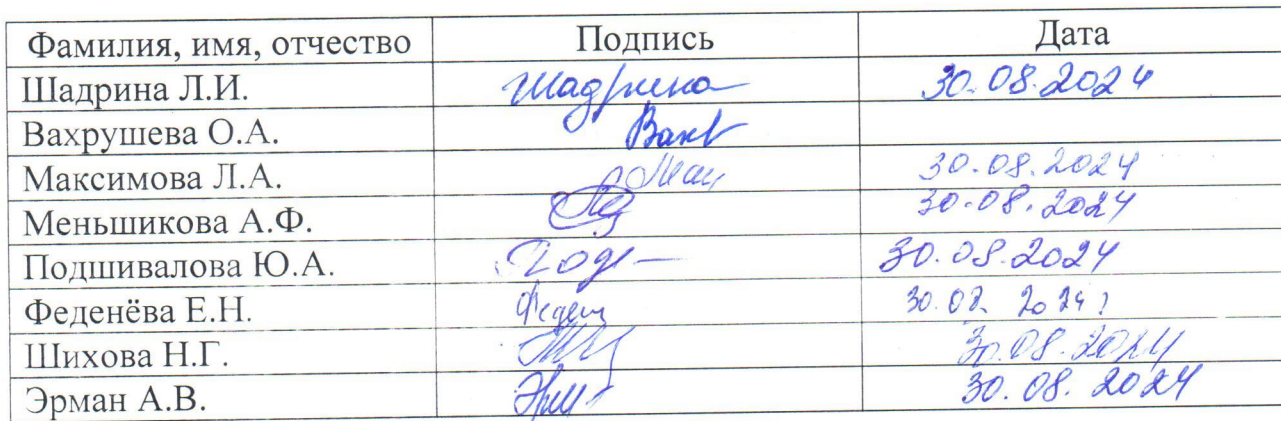 Фамилия, имя, отчество Подпись Дата
Шадрина Л.И. Шадрина 30.08.2024
Вахрушева О.А.
Максимова Л.А. 30.08.2024
Меньшикова А.Ф. 30.08.2024
Подшивалова Ю.А. 30.08.2024
Феденёва Е.Н.
Шихова Н.Г. 30.08.2024
Эрман А.В. 30.08.2024